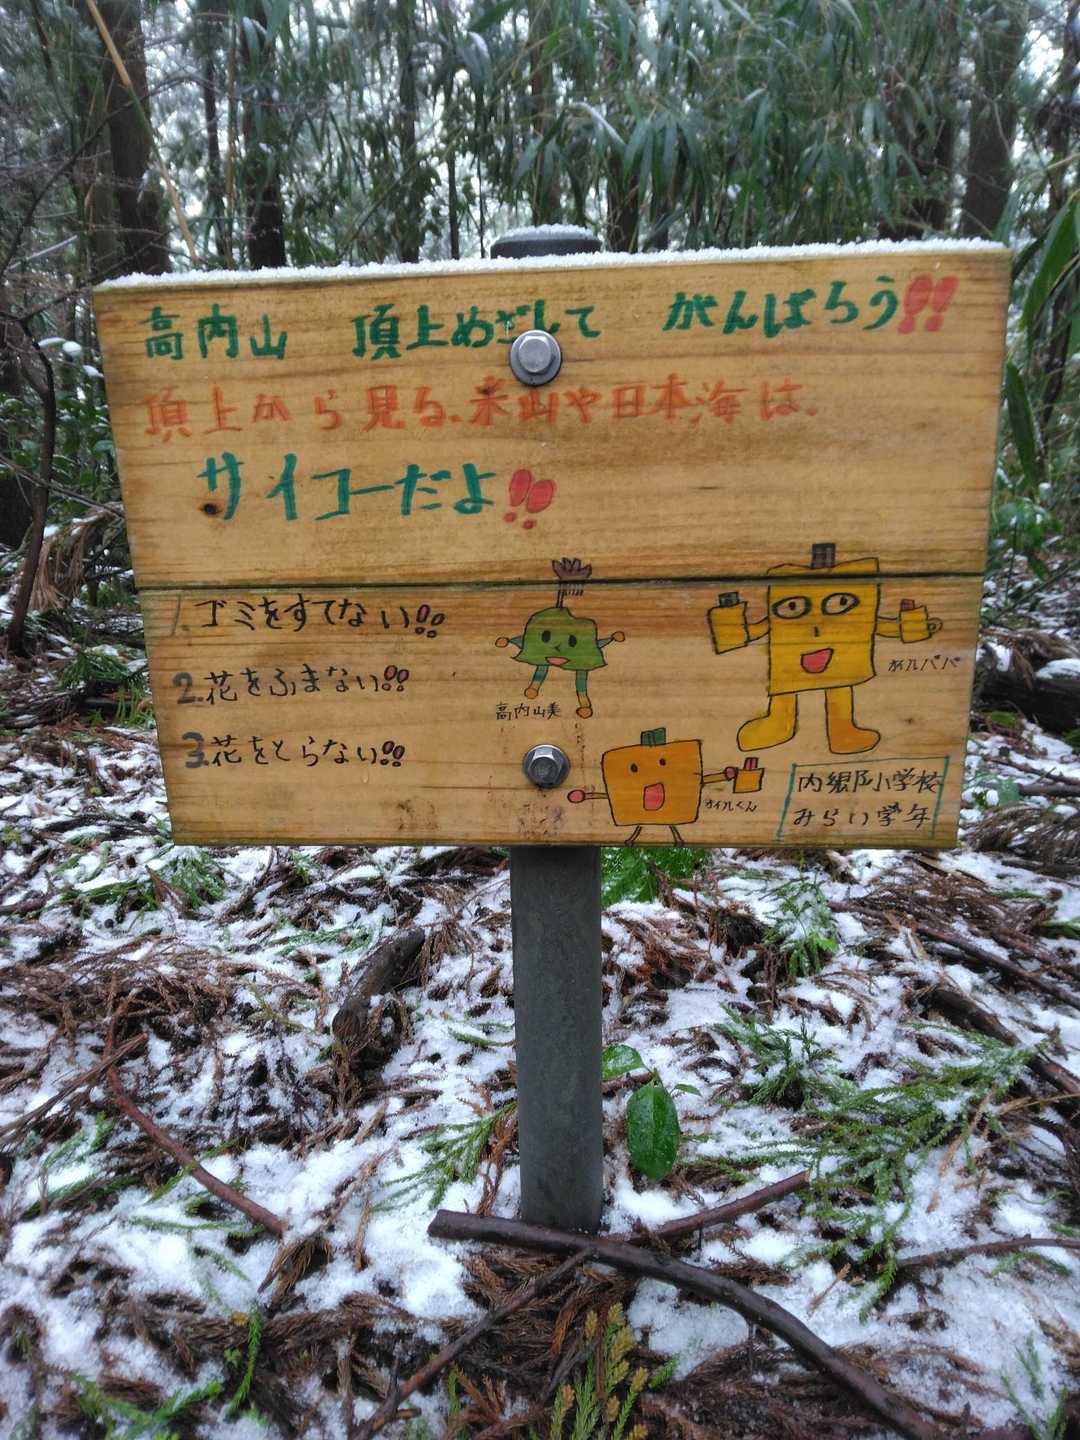 高内山 頂上めざして がんばろう!!
頂上から見る、米山や日本海は、
サイコーだよ!!
1.ゴミをすてない!!
2.花をふまない!!
3.花をとらない!!
高内山美
オイルパパ
オイルくん
内郷小学校
みらい学年